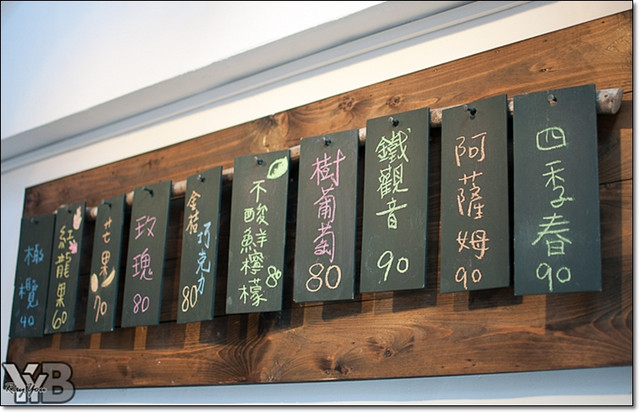 橄欖
40
紅龍果
60
芒果
70
玫瑰
80
金桔
巧克力
80
不酸
鮮檸檬
80
樹葡萄
80
鐵觀音
90
阿薩姆
90
四季春
90